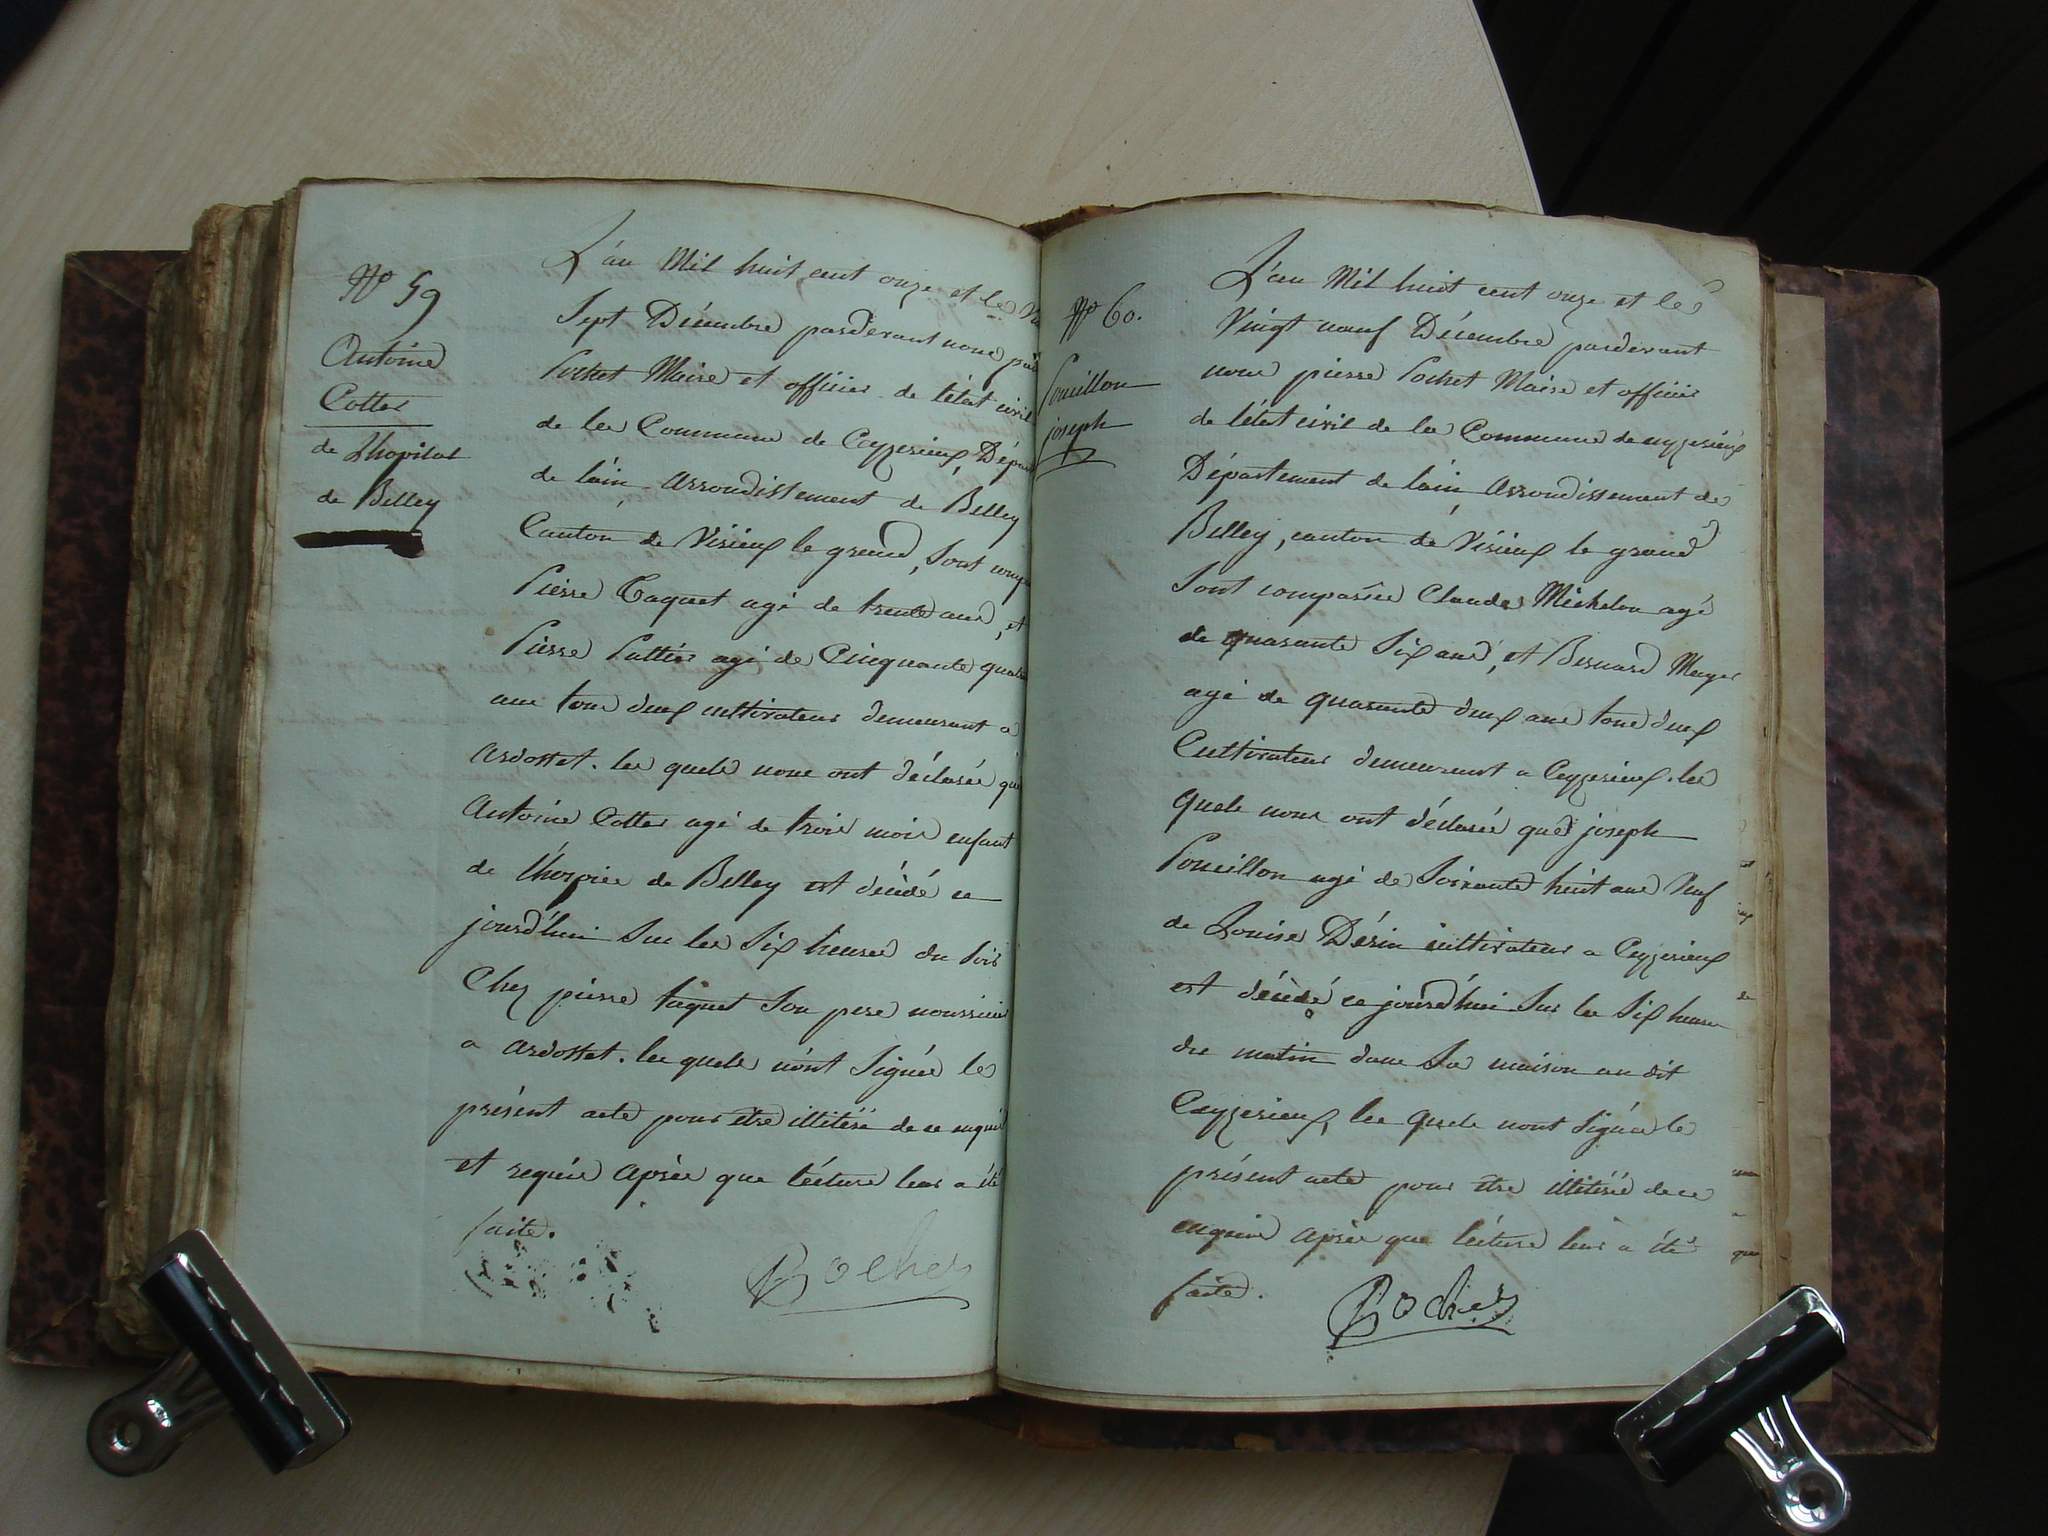 N° 59
Antoine
Cottes
de Lhopital
de Belley
L'an Mil huit cent onze et le
Sept Décembre pardevant nous
Pochet Maire et officier de l'état civil
de la Commune de Ceyzerieux,
de l'ain Arrondissement de Belley
Canton de Virieux le grand, Sont
Pierre Taquet agé de trente ans, et
Pierre agé de Cinquante quatre
ans tous deux cultivateurs demeurant a
ardosset. les quels nous ont déclarés que
Antoine Cottes agé de trois mois enfant
de l'hospice de Belley est décédé ce
jourd'hui Sur les Six heures du Soir
Chez pierre taquet Son pere nourricier
a ardosset. les quels n'ont Signés le
présent acte pour être illitéré de ce enquis
et requis après que lécture leur a été
faite.
Pochet
N° 60.
Poncillon
joseph
L'an Mil huit cent onze et le
Vingt neuf Décembre pardevant
nous pierre Pochet Maire et officier
de l'état civil de la Commune de ceyzerieux
Département de l'ain Arrondissement de
Belley, canton de Virieux le grand
Sont comparus Claude Michelon agé
de quarante Six ans, et Bernard Muger
agé de quarante deux ans tous deux
Cultivateurs demeurant a Ceyzerieux. les
Quels nous ont déclarés que joseph
Poncillon agé de Soixante huit ans Veuf
de Louise Dérin cultivateur a Ceyzerieux
est décédé ce jourd'hui Sur les Six heures
du matin dans Sa maison au dit
Ceyzerieux, les Quels n'ont Signés le
présent acte pour être illitéré de ce
enquis après que lécture leur a été
faite.
Pochet